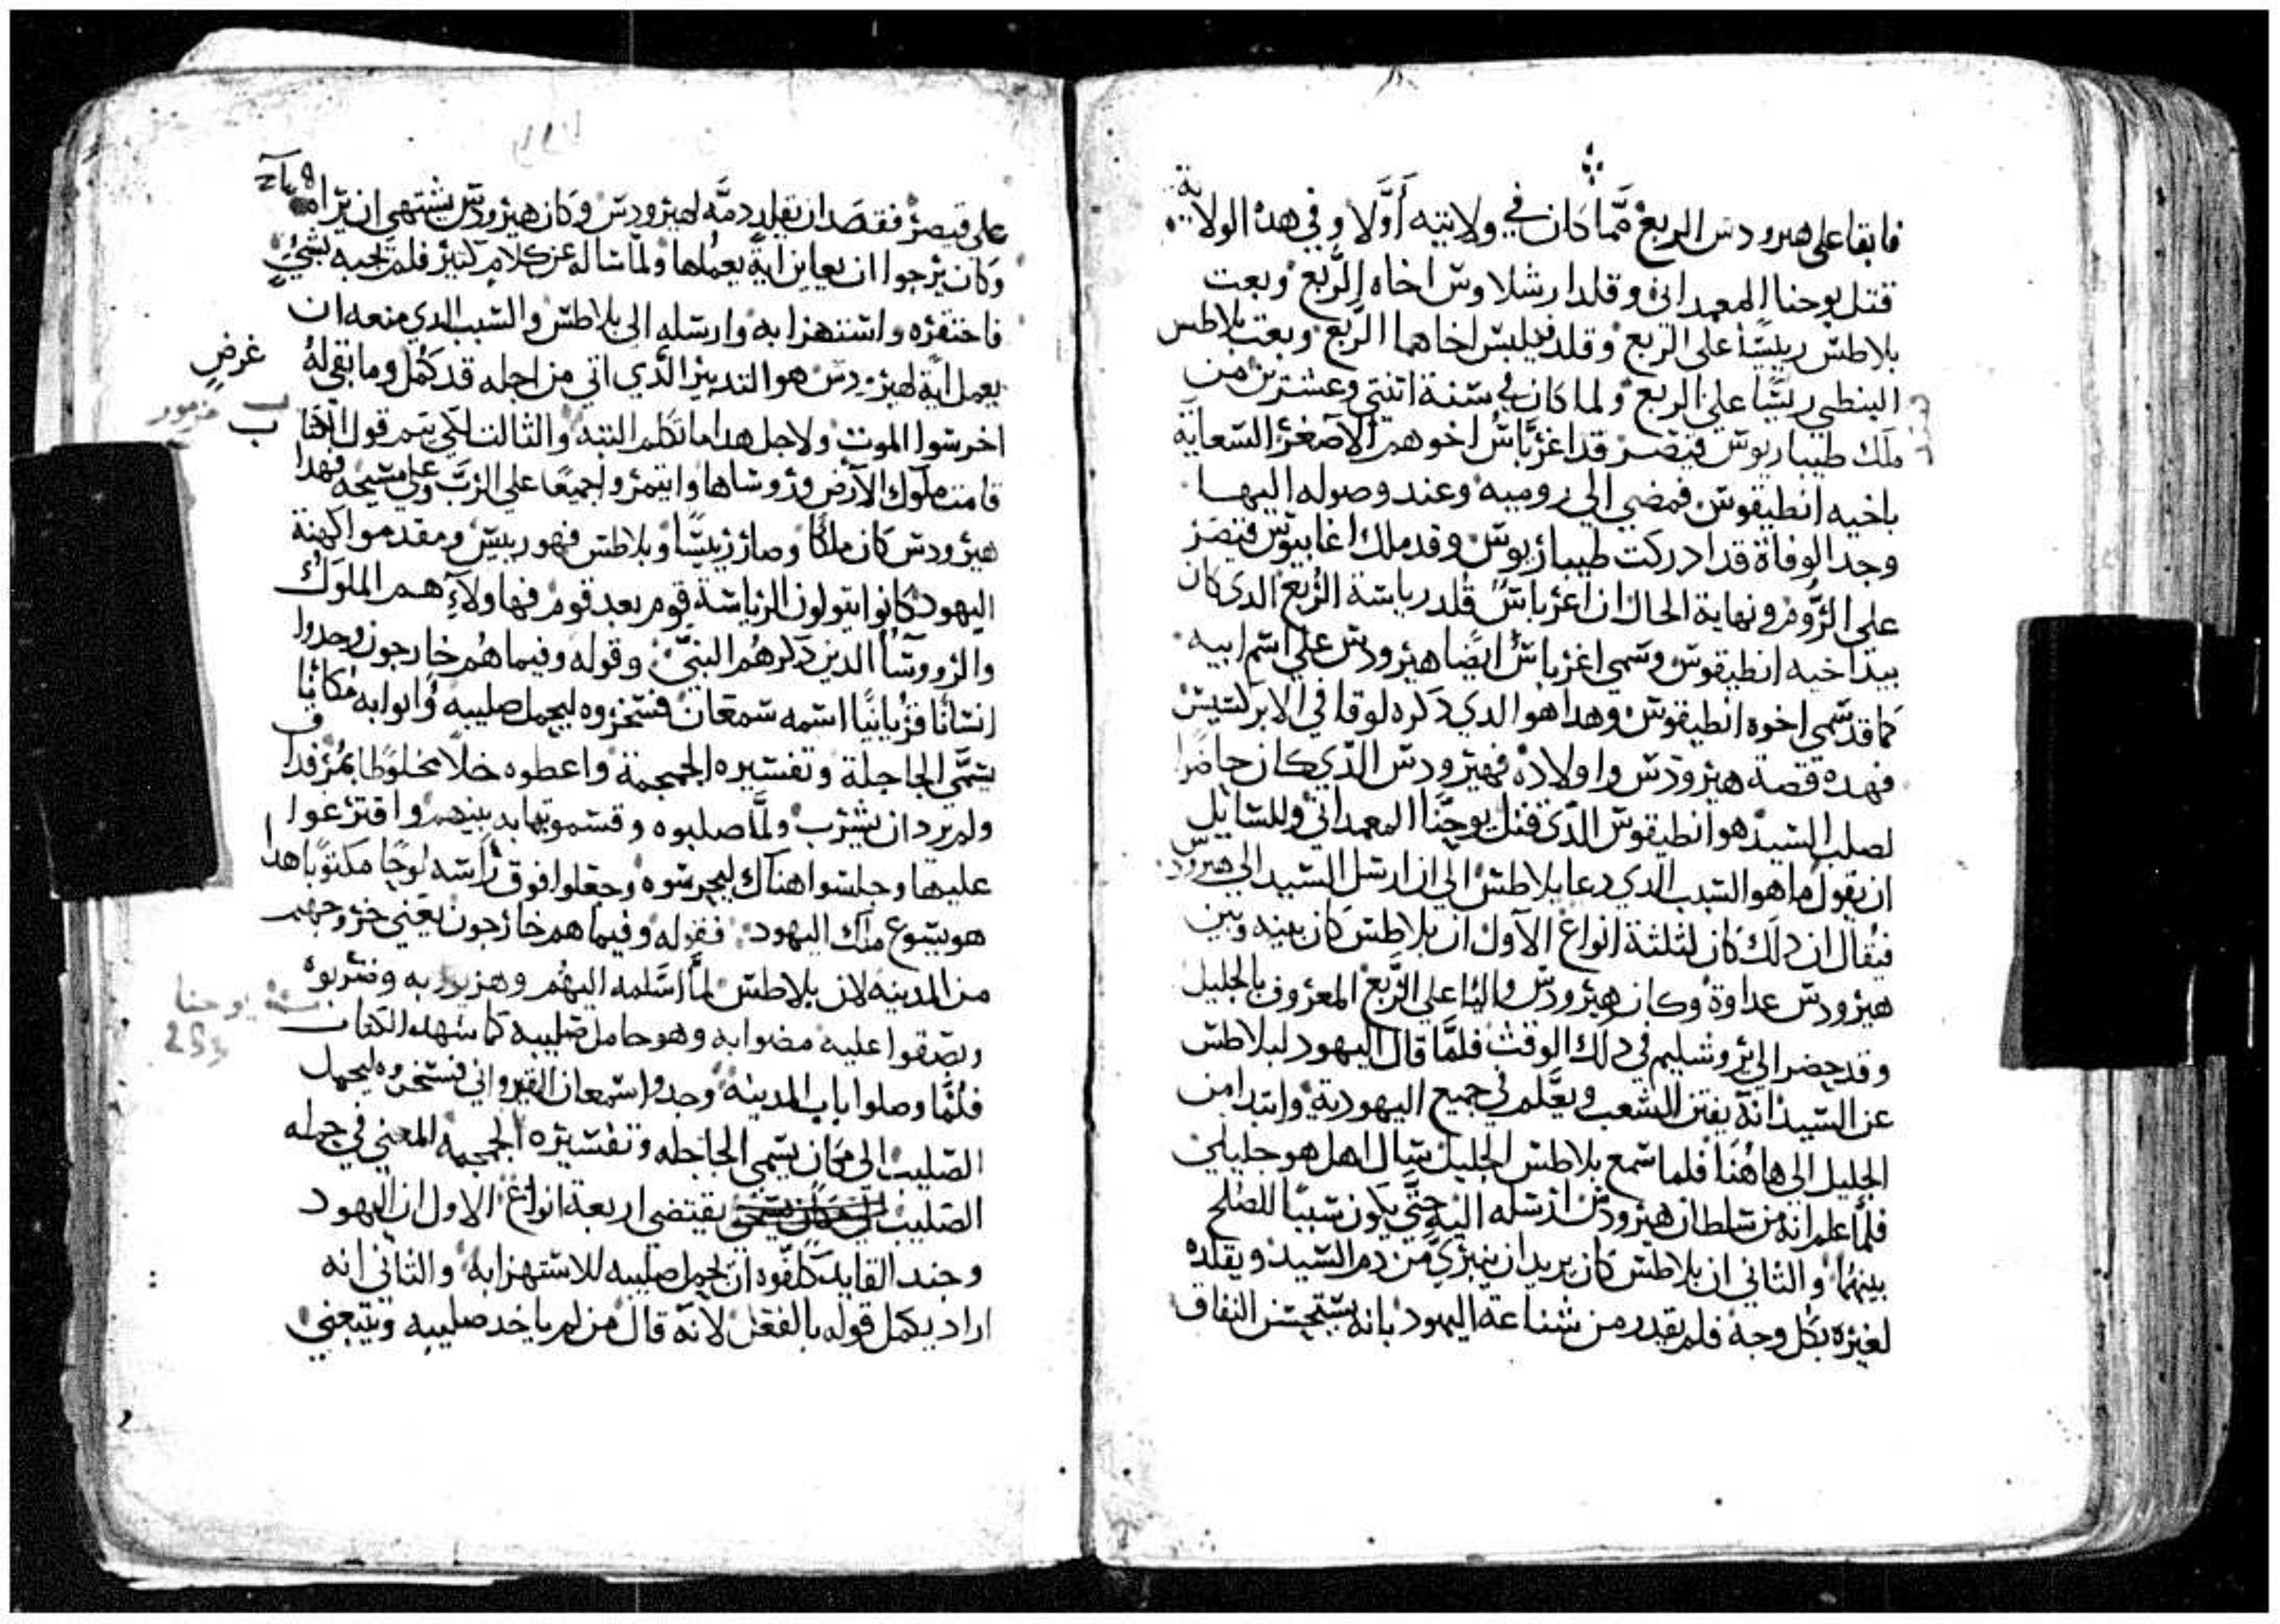 فابقا على هيرودس الربع مما كان في ولايته أولا وفي هده الولاية
قتل يوحنا المعمداني وقلد ارشلاوس اخاه الربع وبعت
بلاطس رييسًا على الربع وقلد فيلبس اخاهما الربع وبعت بلاطس
البنطي رييسًا على الربع ولما كان في سنة اتنتي وعشرين من
ملك طيباريوس قيصر قد اغرباس اخوهم الاصغر السعاية
باخيه انطيقوس فمضي الى روميه وعند وصوله اليها
وجد الوفاة قد ادركت طيباريوس وقد ملك اغابيوس قيصر
على الروم ونهاية الحال ان اغرباس قلد رياسة الربع الدي كان
بيد اخيه انطيقوس وسمي اغرباس ايضا هيرودس على اسم ابيه
كما قد سمي اخوه انطيقوس وهدا هو الدي دكره لوقا في الابركسيس
فهده قصة هيرودس واولاده فهيرودس الدي كان حاضرا
لصلب السيد هو انطيقوس الدي قتل يوحنا المعمداني وللسايل
ان يقول ما هو السبب الدي دعا بلاطس الى ان ارسل السيد الى هيرودس
فيقال ان دلك كان لثلثة انواع الاول ان بلاطس كان بينه وبين
هيرودس عداوة وكان هيرودس واليا على الربع المعروف بالجليل
وقد حضر الى يروشليم في دلك الوقت فلما قال اليهود لبلاطس
عن السيد انه يفتن الشعب ويعلم في جميع اليهودية وابتدا من
الجليل الى هاهنا فلما سمع بلاطس الجليل سال اهل هو جليلي
فلما علم انه من سلطان هيرودس ارسله اليه حتى يكون سببا للصلح
بينهما والثاني ان بلاطس كان يريد ان يتبرى من دم السيد ويقلده
لغيره بكل وجه فلم يقدر من شناعة اليهود بانه يستحسن النفاق
على قيصر فقصد ان يقلد دمه لهيرودس وكان هيرودس يشتهي ان يراه
وكان يرجوا ان يعاين اية يعملها ولما ساله عن كلام كتير فلم يجبه بشي
فاحتقره واستهزا به وارسله الى بلاطس والسبب الدي منعه ان
يعمل اية لهيرودس هو التدبير الدي اتي من اجله قد كمل وما بقي له
غرض
اخر سوا الموت ولاجل هدا ما تكلم البتة والثالت لكي يتم قول الكتا
ب
مزمور ب
قامت ملوك الارض وروساها وايتمروا جميعا على الرب وعلى مسيحه فهدا
هيرودس كان ملكا وصار رييسًا وبلاطس فهو رييس ومقدموا كهنة
اليهود كانوا يتولون الرياسة قوم بعد قوم فهاولاء هم الملوك
والروسا الدين دكرهم النبي وقوله وفيما هم خارجون وجدوا
انسانا قريانيا اسمه سمعان فسخروه ليحمل صليبه واتوا به مكانا
يسمى الجاجلة وتفسيره الجمجمة واعطوه خلا مخلوطا بمر فدا
ق
ولم يرد ان يشرب ولما صلبوه وقسموا تيابه بينهم واقترعوا
عليها وجلسوا هناك ليحرسوه وجعلوا فوق راسه لوحا مكتوبا هدا
هو يسوع ملك اليهود فقوله وفيما هم خارجون يعني خروجهم
من المدينه لان بلاطس لما اسلمه اليهم وهزوا به وضربوه
يوحنا
وبصقوا عليه مضوا به وهو حامل صليبه كما شهد الكتاب
فلما وصلوا باب المدينة وجدوا سمعان القيرواني فسخروه ليحمل
الصليب الى مكان يسمى الجاجله وتفسيره الجمجمه المعني في حمله
الصليب يقتضي اربعة انواع الاول ان اليهود
وجند القايد كلفوه ان يحمل صليبه للاستهزا به والتاني انه
اراد يكمل قوله بالفعل لانه قال من لم ياخد صليبه ويتبعني